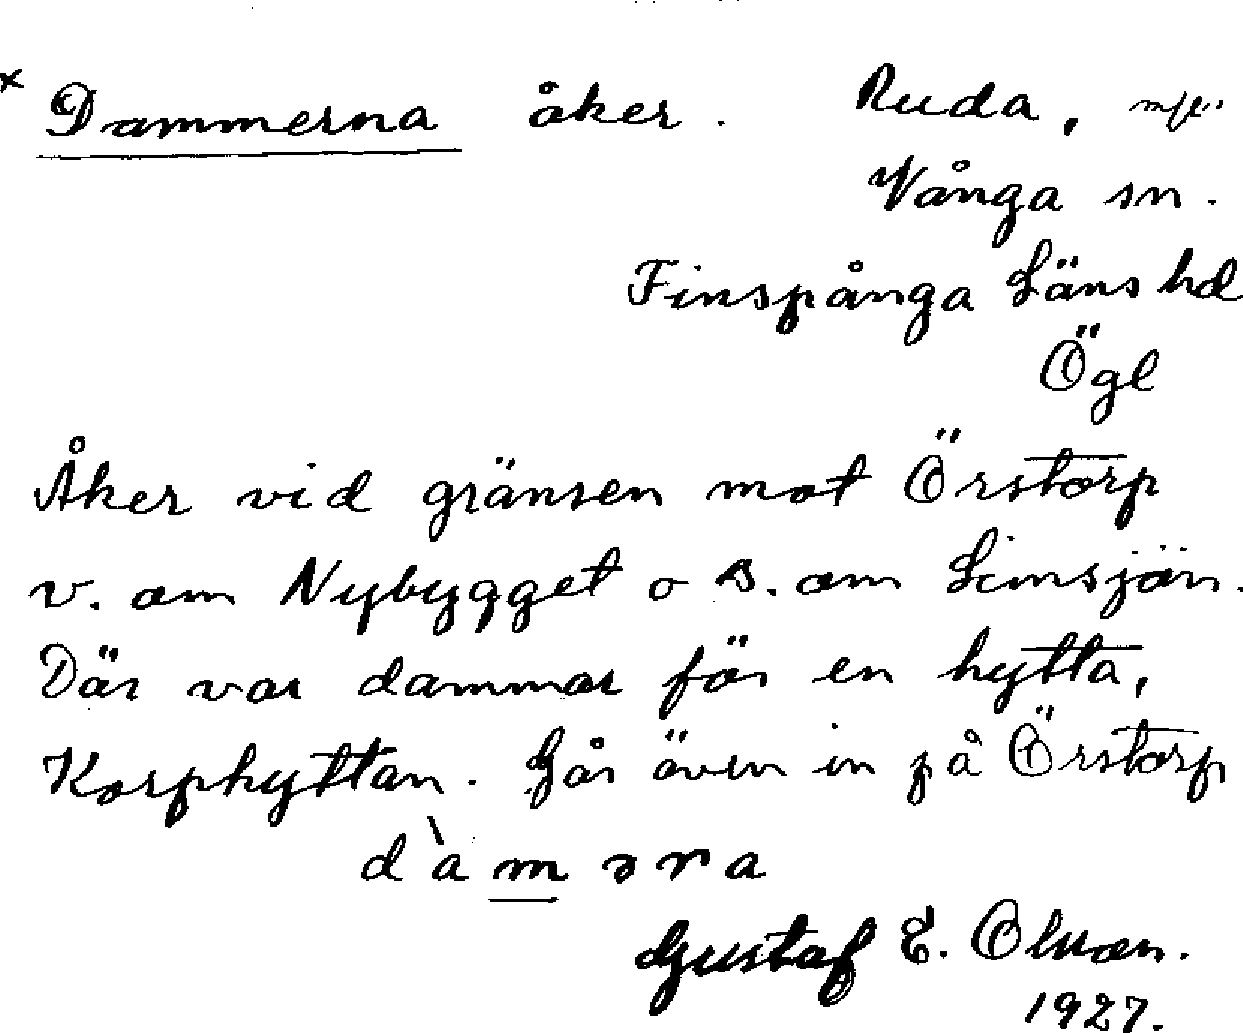 × Dammerna åker. Ruda, mfl.
Vånga sn.
Finspånga Läns hd
Ögl
Åker vid gränsen mot Örstorp
v. om Nybygget o S. om Limsjön.
Där var dammar för en hytta,
Korphyttan. Går även in på Örstorp
dàməra
Gustaf E. Olsson.
1927.